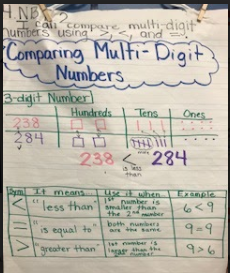 4.NB 2
I can compare multi-digit
numbers using >, <, and =.
Comparing Multi-Digit
Numbers
3-digit Number
Hundreds Tens Ones
238
284
238 < 284
is less
than
Sym It means Use it when Example
< "less than" 1st number is
smaller than
the 2nd number 6 < 9
= "is equal to" both numbers
are the same 9 = 9
> "greater than" 1st number is
larger than the
number 9 > 6